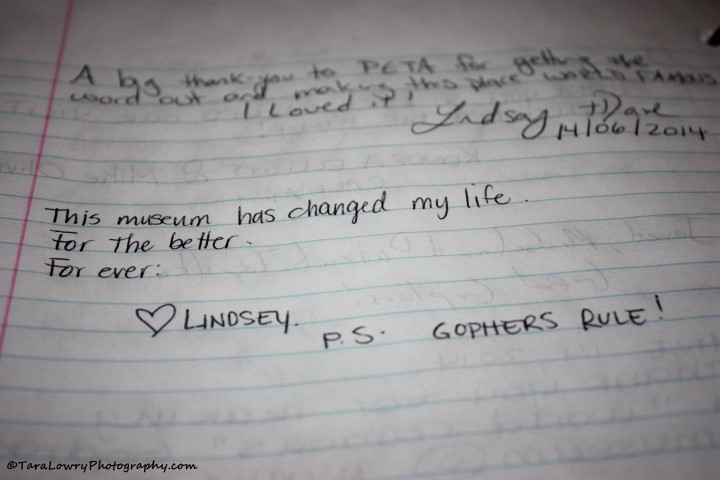 A big thank-you to PETA for getting the
word out and making this place WORLD FAMOUS
I Loved it!
Lyndsay + Dave
14/06/2014
This museum has changed my life.
For the better.
For ever:
♡ LINDSEY.
P.S. GOPHERS RULE!
©TaraLowryPhotography.com